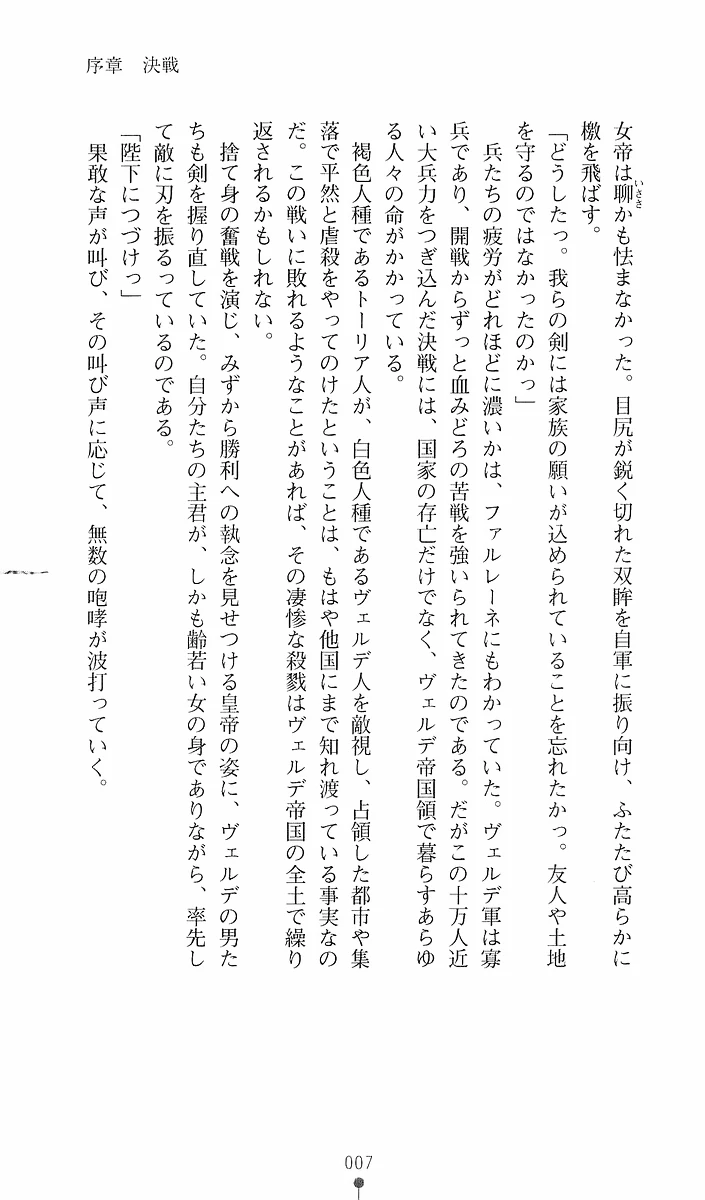 序章　決戦
女帝は聊かも怯まなかった。目尻が鋭く切れた双眸を自軍に振り向け、ふたたび高らかに
いささ
檄を飛ばす。
「どうしたっ。我らの剣には家族の願いが込められていることを忘れたかっ。友人や土地
を守るのではなかったのかっ」
　兵たちの疲労がどれほどに濃いかは、ファルレーネにもわかっていた。ヴェルデ軍は寡
兵であり、開戦からずっと血みどろの苦戦を強いられてきたのである。だがこの十万人近
い大兵力をつぎ込んだ決戦には、国家の存亡だけでなく、ヴェルデ帝国領で暮らすあらゆ
る人々の命がかかっている。
　褐色人種であるトーリア人が、白色人種であるヴェルデ人を敵視し、占領した都市や集
落で平然と虐殺をやってのけたということは、もはや他国にまで知れ渡っている事実なの
だ。この戦いに敗れるようなことがあれば、その凄惨な殺戮はヴェルデ帝国の全土で繰り
返されるかもしれない。
　捨て身の奮戦を演じ、みずから勝利への執念を見せつける皇帝の姿に、ヴェルデの男た
ちも剣を握り直していた。自分たちの主君が、しかも齢若い女の身でありながら、率先し
て敵に刃を振るっているのである。
「陛下につづけっ」
　果敢な声が叫び、その叫び声に応じて、無数の咆哮が波打っていく。
007